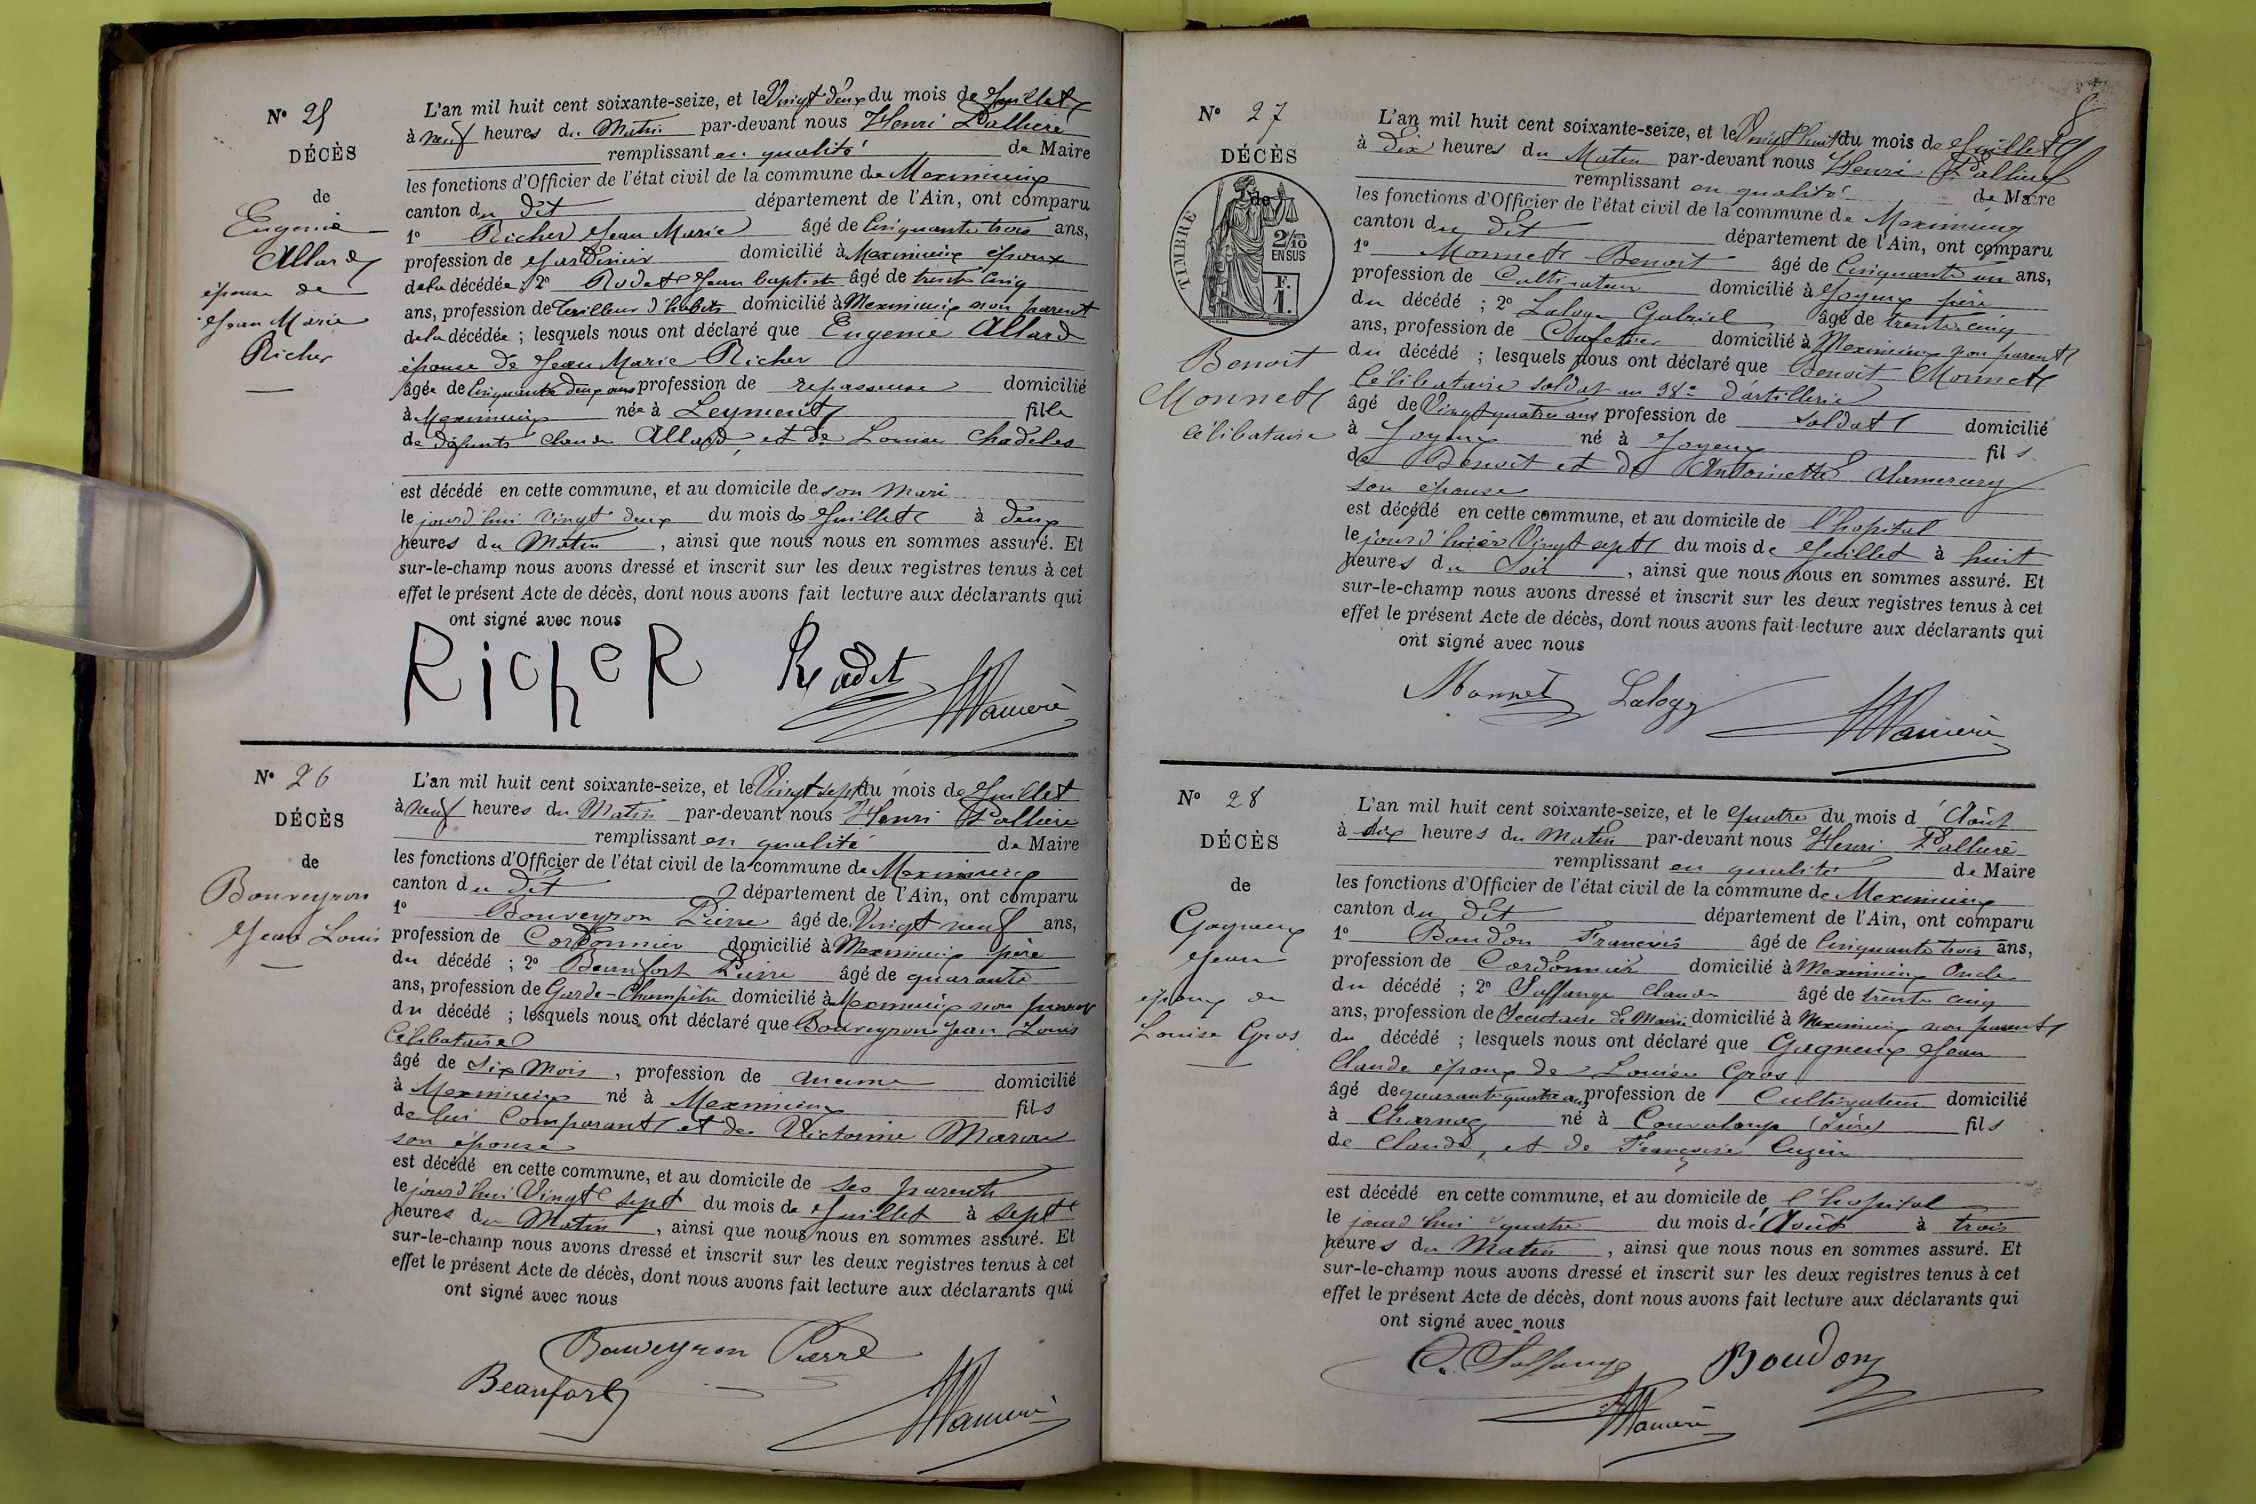 N° 25
DÉCÈS
de
Eugenie
Allard
épouse de
Jean Marie
Richer
L'an mil huit cent soixante-seize, et le Vingt deux du mois de Juillet
à neuf heures du Matin par-devant nous Henri
remplissant en qualité de Maire
les fonctions d'Officier de l'état civil de la commune de Meximieux
canton du dit département de l'Ain, ont comparu
1° Richer Jean Marie âgé de Cinquante trois ans,
profession de Jardinier domicilié à Meximieux époux
de la décédée ; 2° Rodet Jean baptiste âgé de trente cinq
ans, profession de Tailleur d'habits domicilié à Meximieux non parent
de la décédée ; lesquels nous ont déclaré que Eugenie Allard
épouse de Jean Marie Richer
âgée de Cinquante deux ans profession de repasseuse domicilié
à Meximieux née à Leyment fille
de défunts Claude Allard, et de Louise
est décédé en cette commune, et au domicile de son Mari
le jourd'hui vingt deux du mois de Juillet à deux
heures du Matin , ainsi que nous nous en sommes assuré. Et
sur-le-champ nous avons dressé et inscrit sur les deux registres tenus à cet
effet le présent Acte de décès, dont nous avons fait lecture aux déclarants qui
ont signé avec nous
RicheR Rodet
N° 26
DÉCÈS
de
Bouveyron
Jean Louis
L'an mil huit cent soixante-seize, et le Vingt sept du mois de Juillet
à neuf heures du Matin par-devant nous Henri
remplissant en qualité de Maire
les fonctions d'Officier de l'état civil de la commune de Meximieux
canton du dit département de l'Ain, ont comparu
1° Bouveyron Pierre âgé de Vingt neuf ans,
profession de Cordonnier domicilié à Meximieux père
du décédé ; 2° Beaufort Pierre âgé de quarante
ans, profession de Garde-Champêtre domicilié à Meximieux non parent
du décédé ; lesquels nous ont déclaré que Bouveyron Jean Louis
Célibataire
âgé de Six Mois , profession de aucune domicilié
à Meximieux né à Meximieux fils
de lui Comparant et de Victorine
son épouse
est décédé en cette commune, et au domicile de ses parents
le jourd'hui Vingt sept du mois de Juillet à sept
heures du Matin , ainsi que nous nous en sommes assuré. Et
sur-le-champ nous avons dressé et inscrit sur les deux registres tenus à cet
effet le présent Acte de décès, dont nous avons fait lecture aux déclarants qui
ont signé avec nous
Bouveyron Pierre
Beaufort
8
N° 27
DÉCÈS
de
TIMBRE
2/10 EN SUS
F. 1.
Benoit
Monnet
Célibataire
L'an mil huit cent soixante-seize, et le Vingt huit du mois de Juillet
à Dix heures du Matin par-devant nous Henri
remplissant en qualité de Maire
les fonctions d'Officier de l'état civil de la commune de Meximieux
canton du dit département de l'Ain, ont comparu
1° Monnet Benoit âgé de Cinquante un ans,
profession de Cultivateur domicilié à Joyeux père
du décédé ; 2° Laloge Gabriel âgé de trente cinq
ans, profession de Cafetier domicilié à Meximieux non parent
du décédé ; lesquels nous ont déclaré que Benoit Monnet
Célibataire soldat au 38e d'artillerie
âgé de Vingt quatre ans profession de soldat domicilié
à Joyeux né à Joyeux fils
de Benoit et de Antoinette Alamercery
son épouse
est décédé en cette commune, et au domicile de l'hopital
le jour d'hier Vingt sept du mois de Juillet à huit
heures du Soir , ainsi que nous nous en sommes assuré. Et
sur-le-champ nous avons dressé et inscrit sur les deux registres tenus à cet
effet le présent Acte de décès, dont nous avons fait lecture aux déclarants qui
ont signé avec nous
Monnet Laloge
N° 28
DÉCÈS
de
Gagneux
Jean
époux de
Louise Gros
L'an mil huit cent soixante-seize, et le Quatre du mois d'Août
à dix heures du Matin par-devant nous Henri
remplissant en qualité de Maire
les fonctions d'Officier de l'état civil de la commune de Meximieux
canton du dit département de l'Ain, ont comparu
1° Boudon Francois âgé de Cinquante trois ans,
profession de Cordonnier domicilié à Meximieux Oncle
du décédé ; 2° Saffange Claude âgé de trente cinq
ans, profession de Secretaire de Mairie domicilié à Meximieux non parent
du décédé ; lesquels nous ont déclaré que Gagneux Jean
Claude époux de Louise Gros
âgé de quarante quatre ans profession de Cultivateur domicilié
à Charnoz né à fils
de Claude, et de Françoise
est décédé en cette commune, et au domicile de l'hopital
le jourd'hui quatre du mois d'Août à trois
heures du Matin , ainsi que nous nous en sommes assuré. Et
sur-le-champ nous avons dressé et inscrit sur les deux registres tenus à cet
effet le présent Acte de décès, dont nous avons fait lecture aux déclarants qui
ont signé avec nous
C. Saffange Boudon